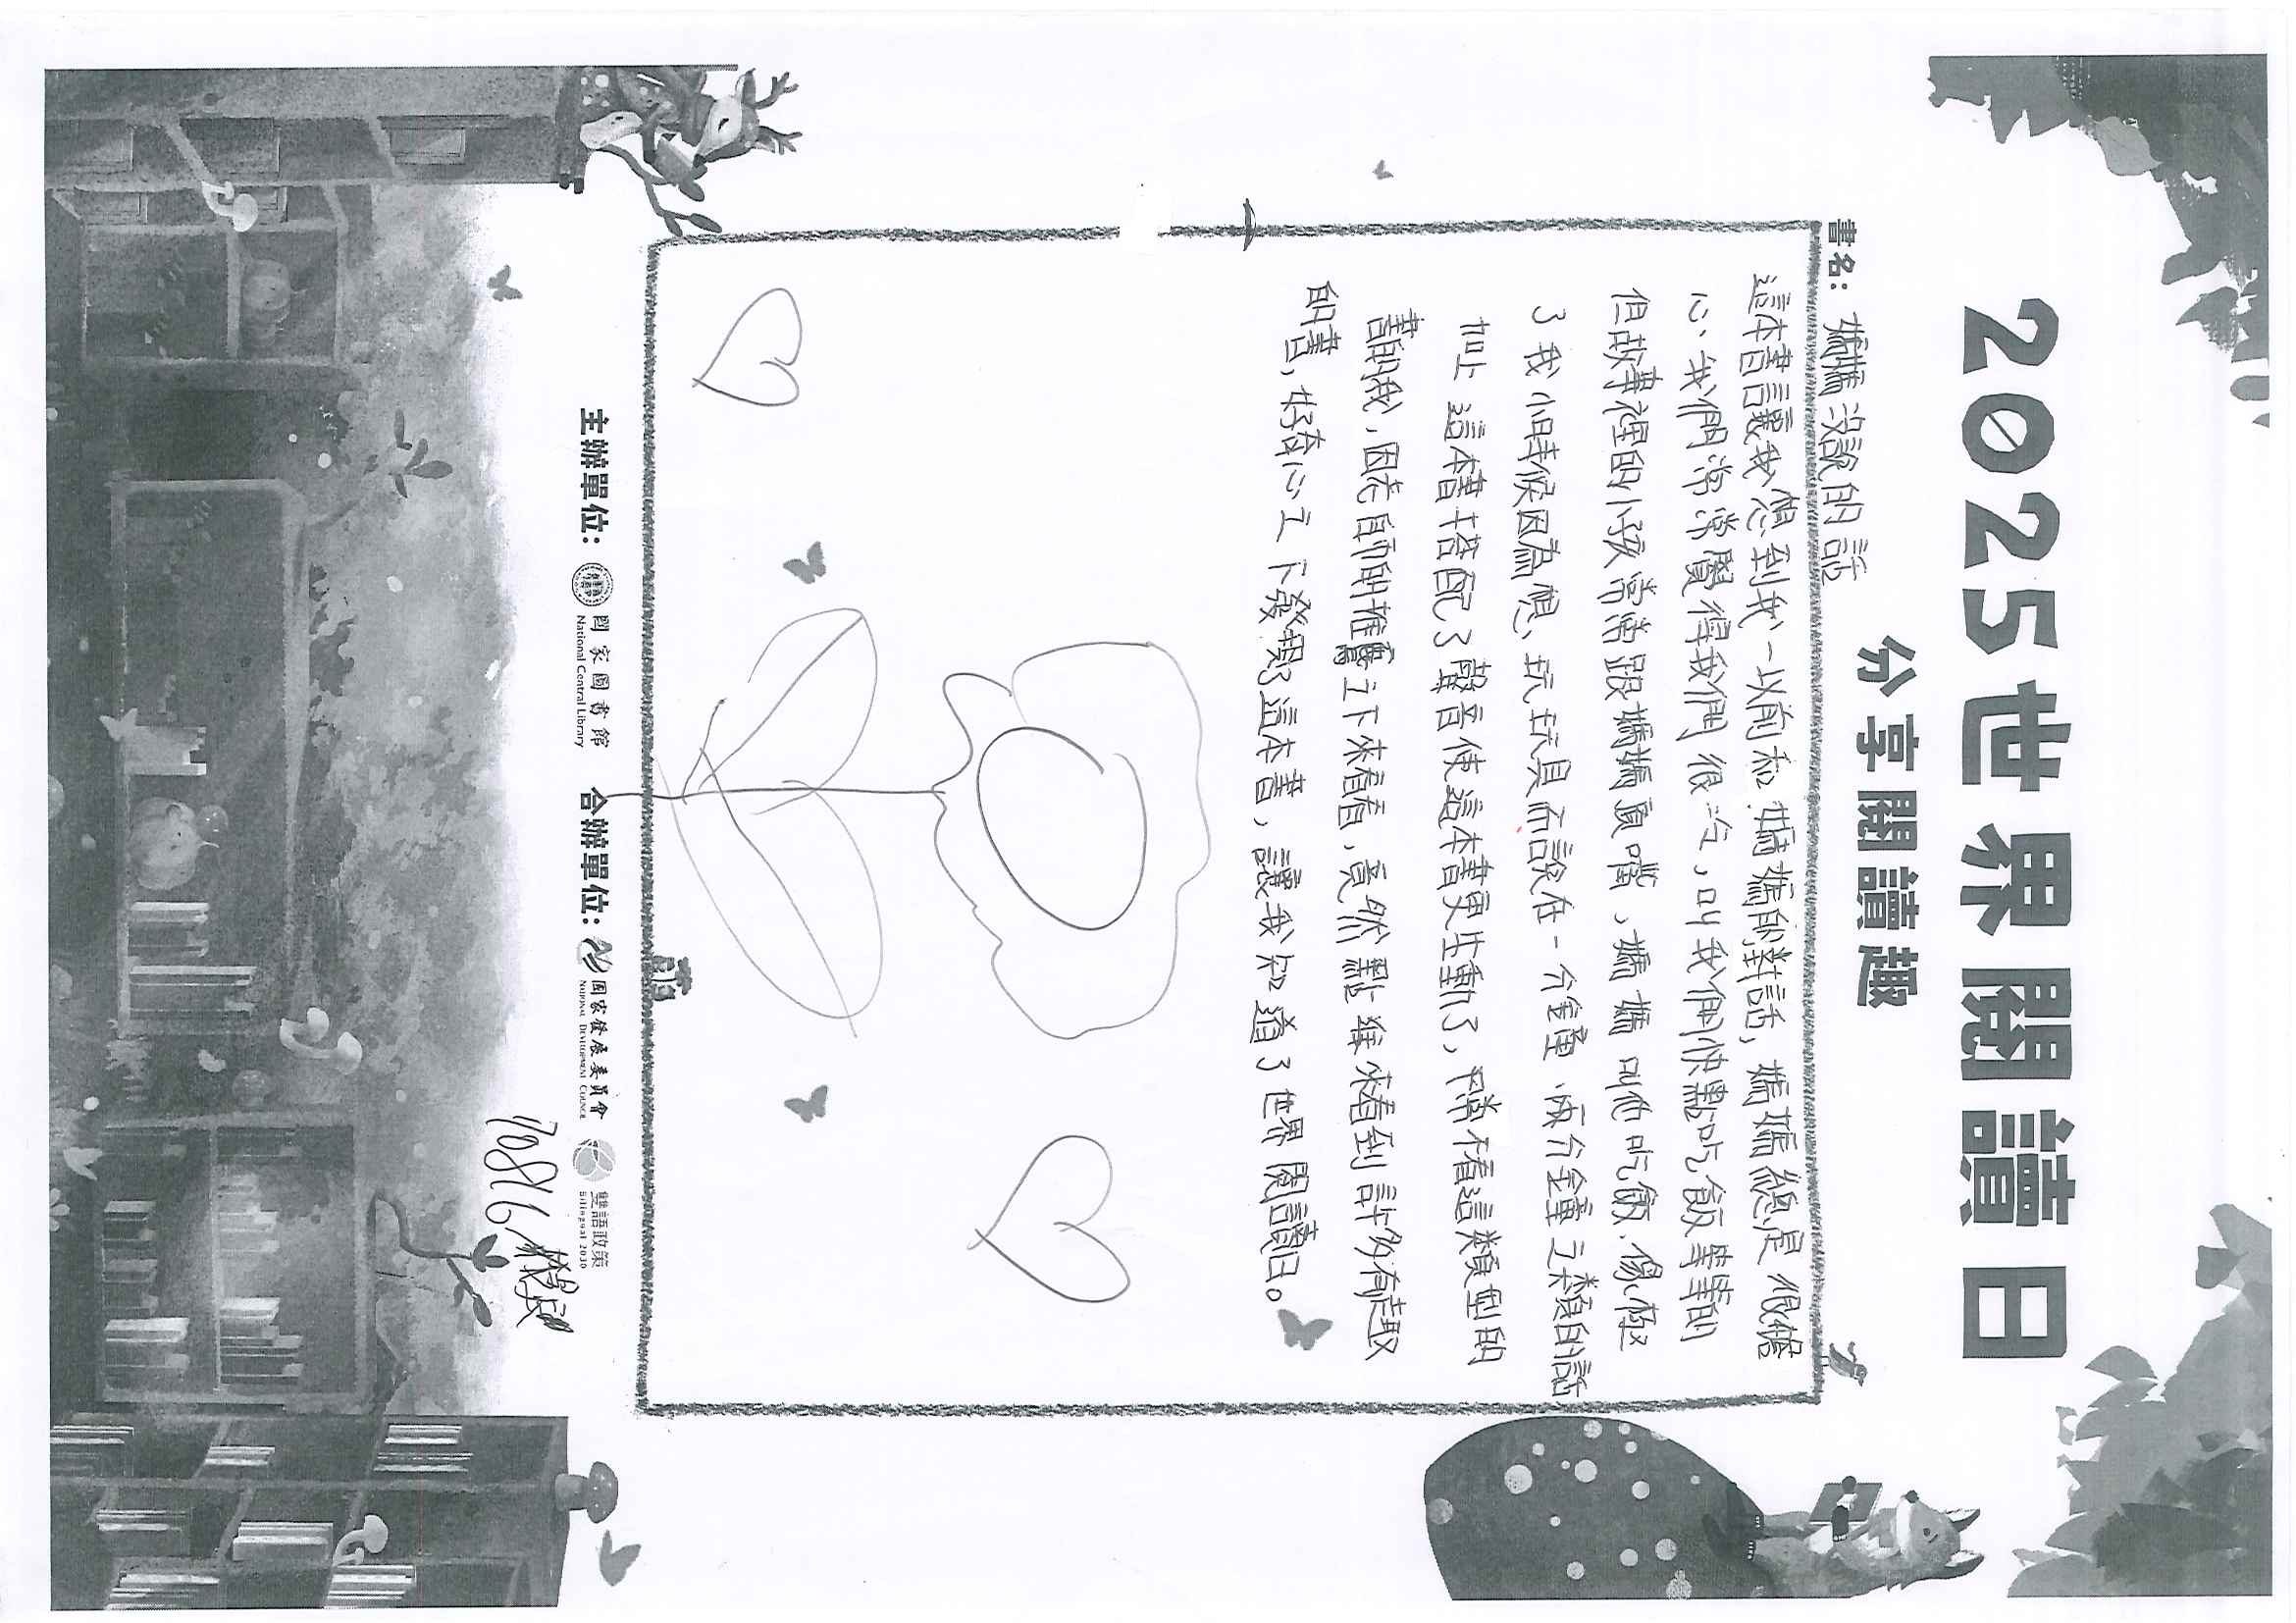 2025世界閱讀日
分享閱讀趣
書名：媽媽沒說的話
這本書讓我想到我一以前和媽媽的對話，媽媽總是很擔
心、我們常常覺得我們很吵，叫我們快點吃飯等等的
但故事裡的小孩常常跟媽媽頂嘴，媽媽叫他吃飯、像極
了我小時候因為想、玩玩具而說在一分鐘兩分鐘之類的話
加上這本書搭配了聲音使這本書更生動了，平常不看這類型的
書的我，因老師的推薦之下來看看，竟然點進來看到許多有趣
的書，好奇心之下發現了這本書，讓我知道了世界閱讀日。
主辦單位：國家圖書館 National Central Library 合辦單位：國家發展委員會 NATIONAL DEVELOPMENT COUNCIL 雙語政策 Bilingual 2030
70816 林